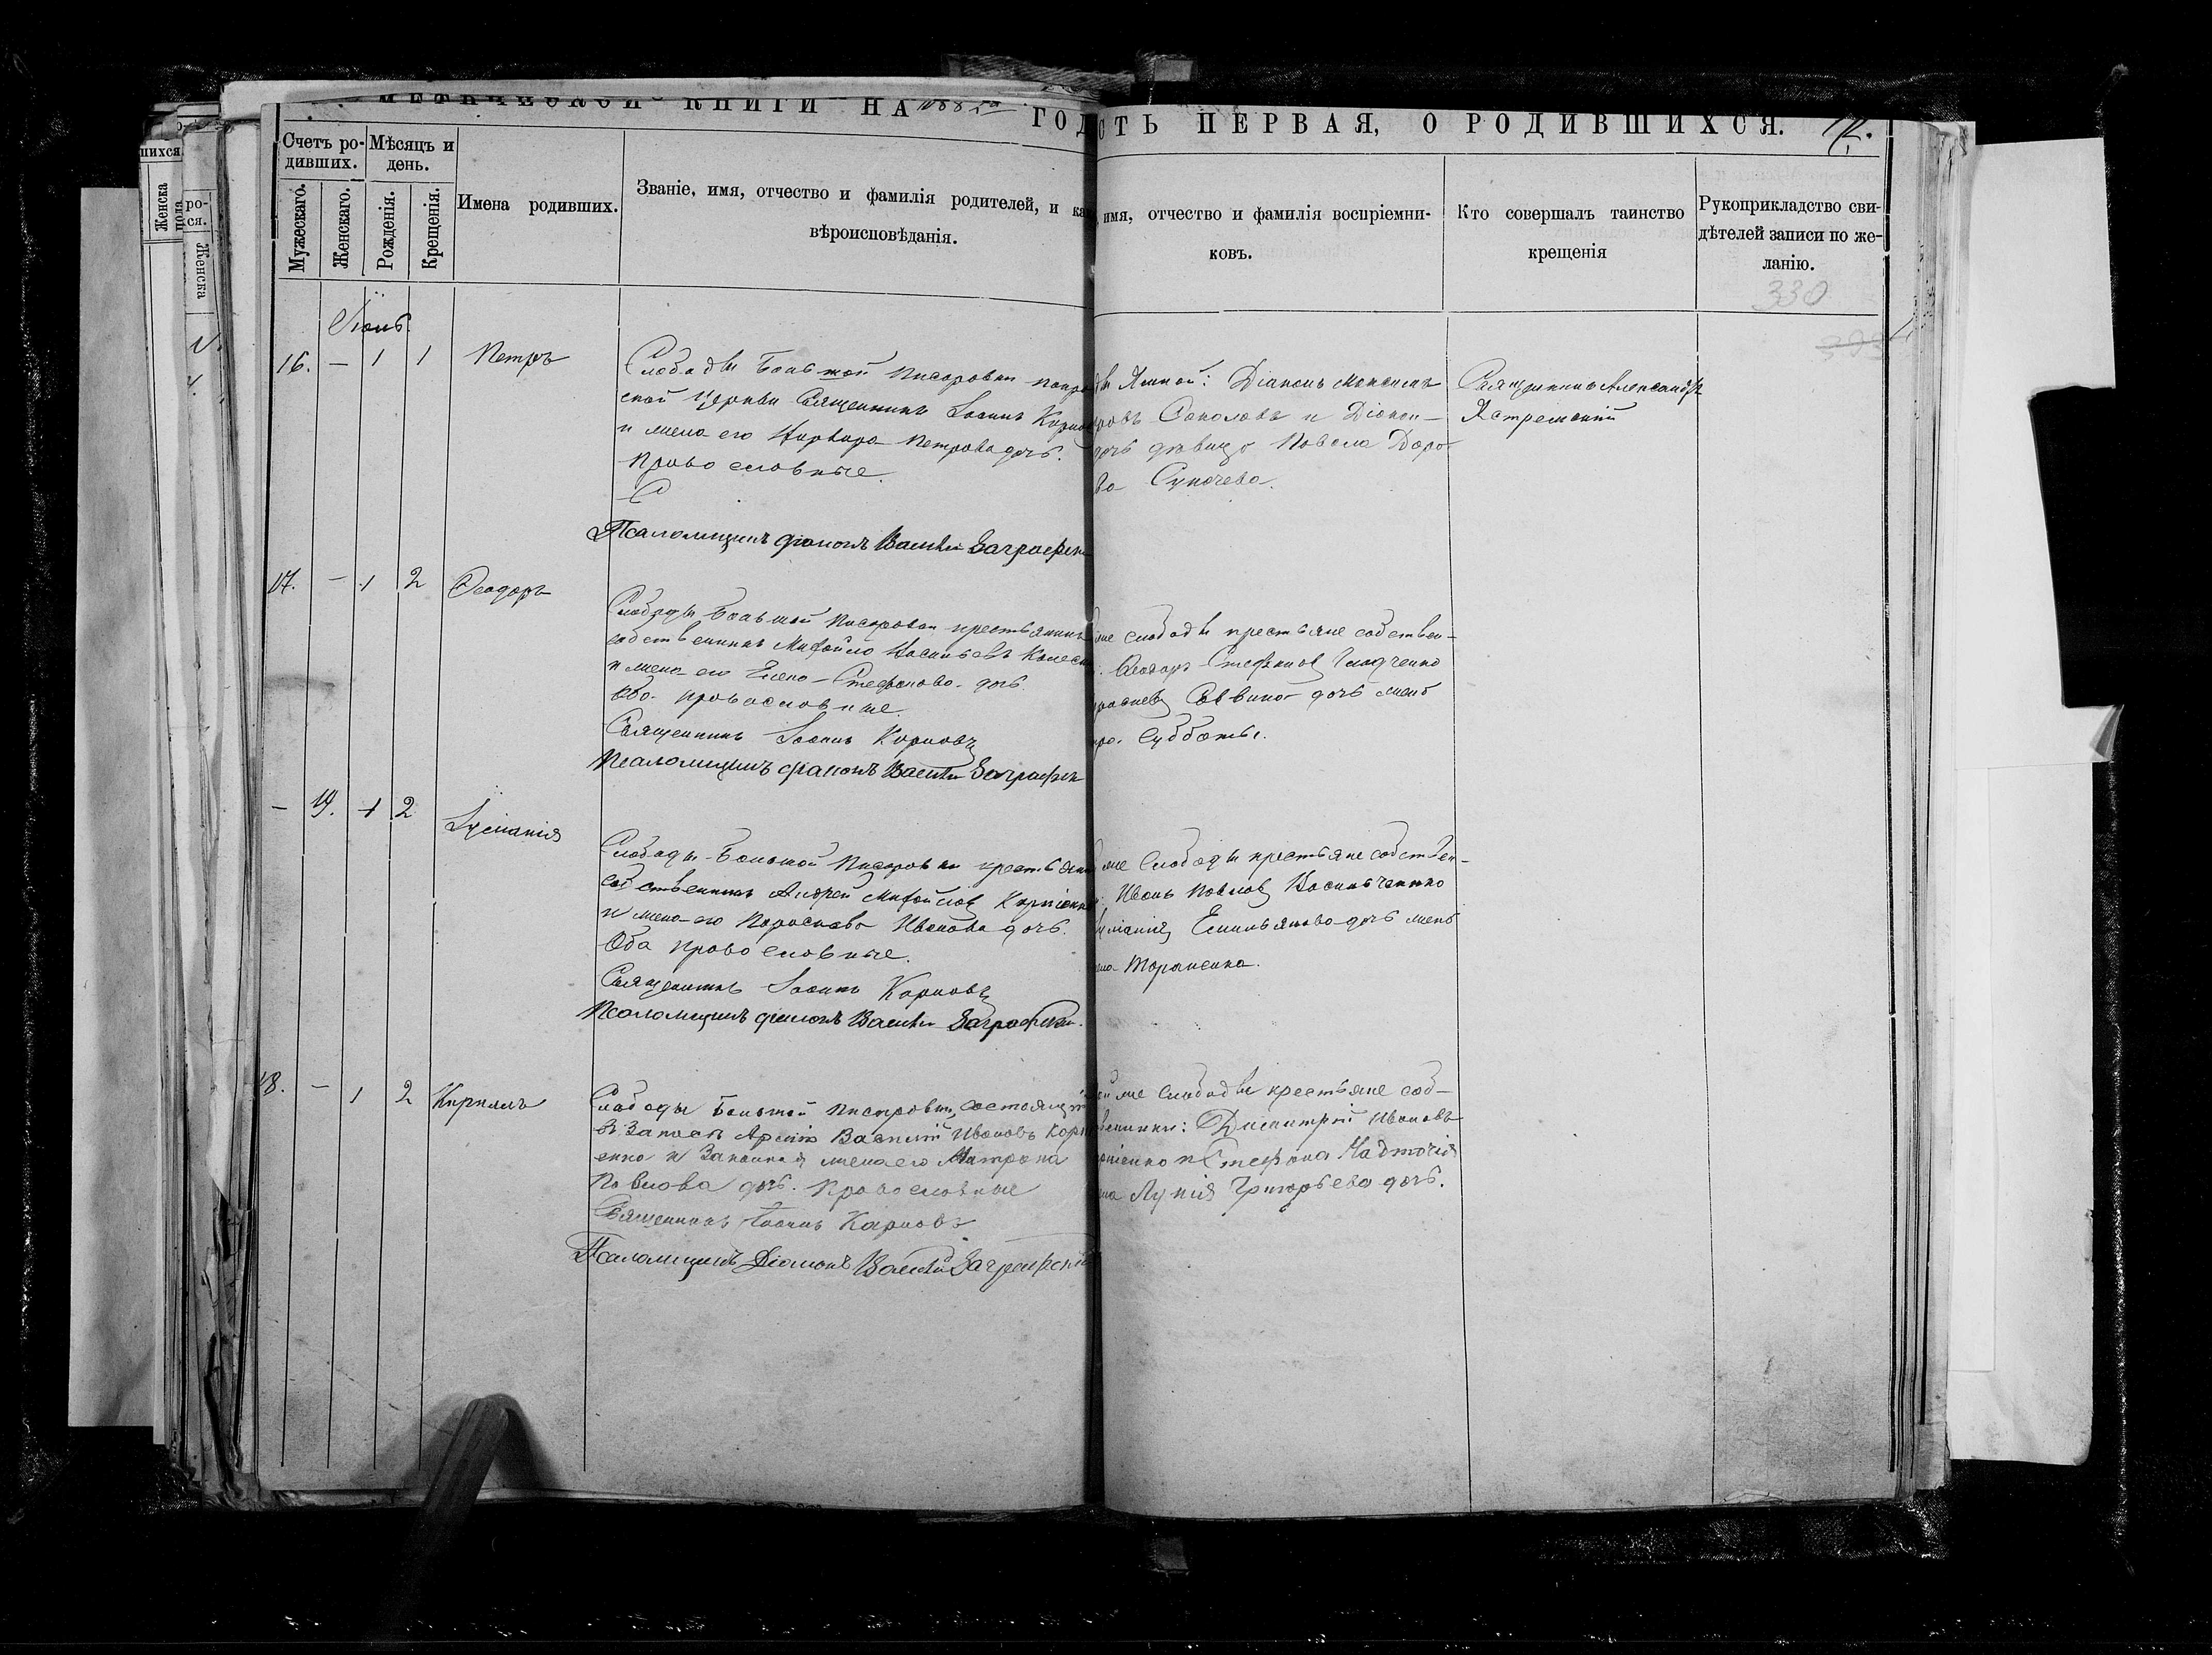 МЕТРИЧЕСКОЙ КНИГИ НА 1885й ГОД
СТЬ ПЕРВАЯ, О РОДИВШИХСЯ.
Счетъ ро-
дившихъ.
Мѣсяцъ и
день.
Мужескаго.
Женскаго.
Рожденія.
Крещенія.
Имена родившихъ.
Званіе, имя, отчество и фамилія родителей, и ка
вѣроисповѣданія.
имя, отчество и фамилія воспріемни-
ковъ.
Кто совершалъ таинство
крещенія
Рукоприкладство сви-
дѣтелей записи по же-
ланію.
330
Іюнь
16. — 1 1 Петръ
Слободы Большой Писаровки покро
ской церкви Священникъ Іоаннъ Карпов
и жена его Варвара Петрова дочь.
православные.
Псаломщикъ діаконъ Василій Заграфск
ды Ямной: Діаконъ
ровъ Соколовъ и Діакон-
дочь дѣвица Павела
ва Сукачева.
Священникъ Александръ
Ястремскій
17. — 1 2 Ѳеодоръ
Слободы Большой Писаровки крестьянинъ
собственникъ Михайло Васильевъ Колесн
и жена его Елена Стефанова дочь.
Оба православные.
Священникъ Іоаннъ Карповъ
Псаломщикъ діаконъ Василій Заграфск
же слободы крестьяне собствен-
Ѳеодоръ Стефановъ Гладченко
Саввина дочь жена
Субботы.
— 14. 1 2 Іуліанія
Слободы Большой Писаровки крестьянин
собственникъ Андрей Михайловъ Карпенк
и жена его Параскева Иванова дочь.
Оба православные.
Священникъ Іоаннъ Карповъ
Псаломщикъ діаконъ Василій Заграфскій.
же Слободы крестьяне собствен-
Иванъ Павловъ Васильченко
уліанія Емильянова дочь жена
Тараненка.
18. — 1 2 Кириллъ
Слободы Большой Писаровки, состоящій
въ Запасѣ Арміи Василій Ивановъ Карп
енко и Законная жена его Матрона
Павлова дочь. Православные
Священникъ Іоаннъ Карповъ
Псаломщикъ Діаконъ Василій Заграфскій
ой же слободы крестьяне соб-
венники: Димитрій Ивановъ
рпенко и Стефана Надточія
на Лукія Григорьева дочь.